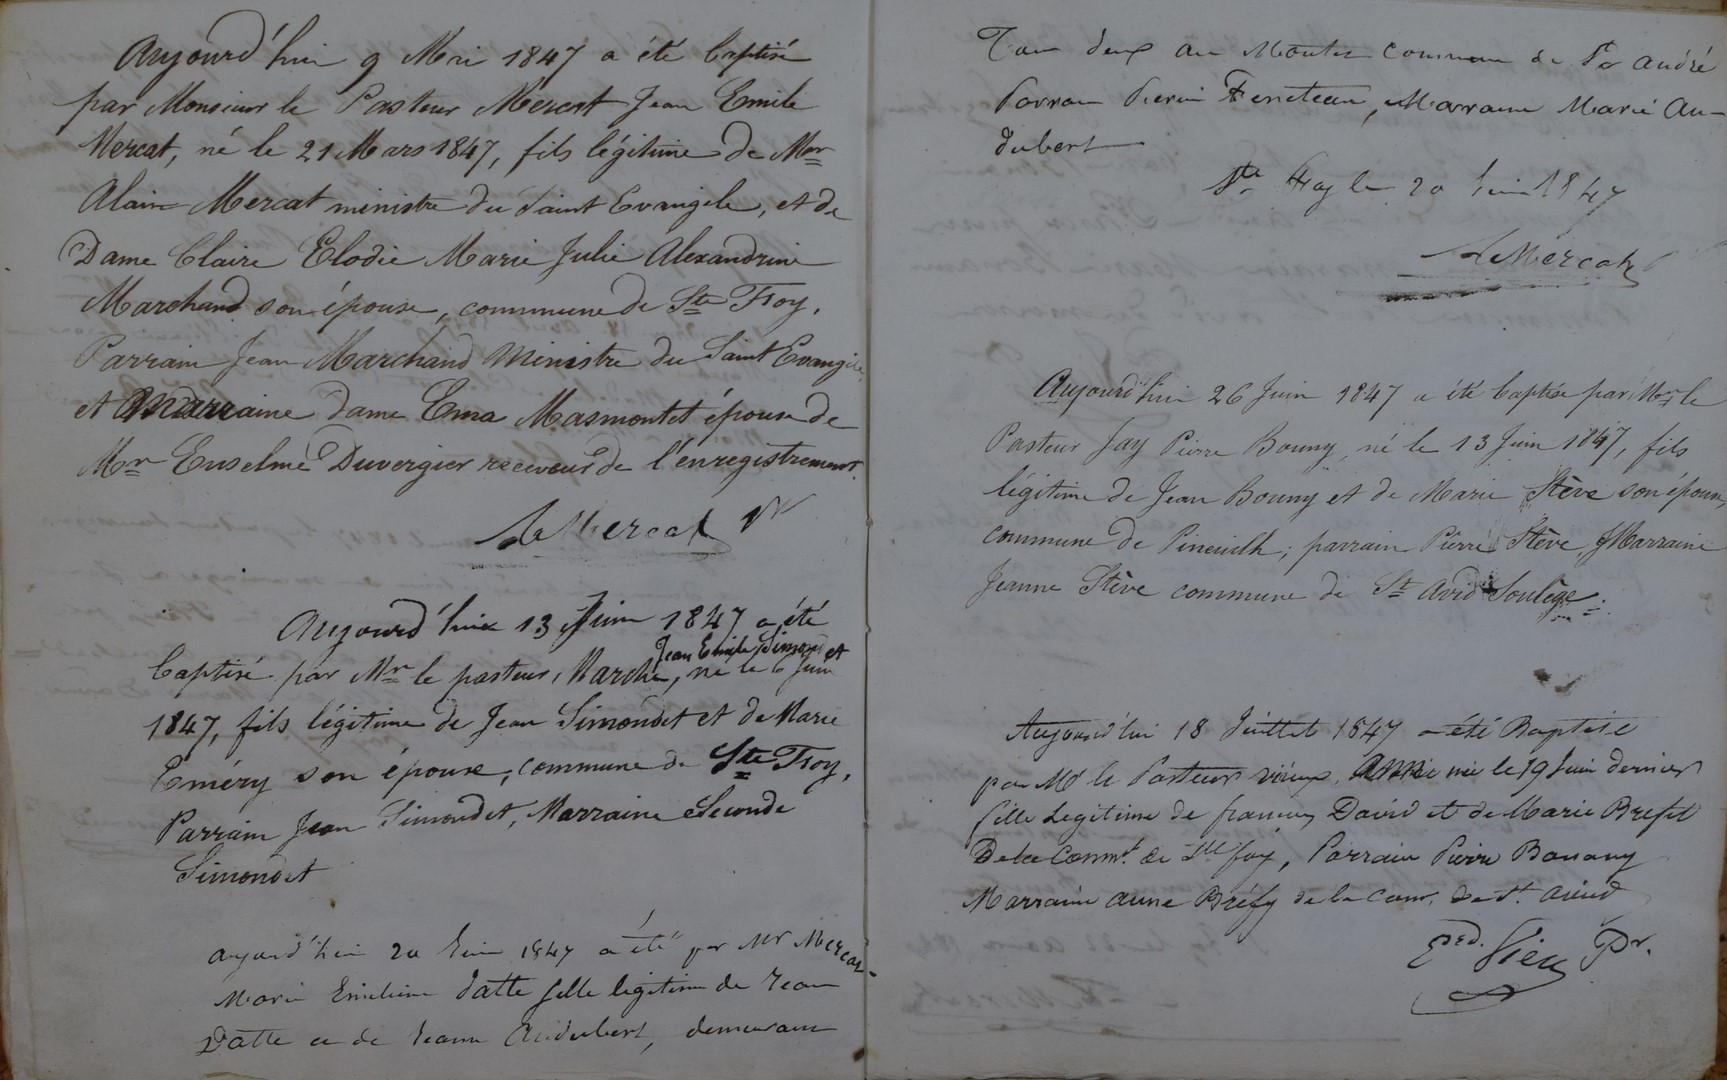 Aujourd'hui 9 Mai 1847 a été baptisé
par Monsieur le Pasteur Mercat Jean Emile
Mercat, né le 21 Mars 1847, fils légitime de Mr
Alain Mercat ministre du Saint Evangile, et de
Dame Claire Elodie Marie Julie Alexandrine
Marchand son épouse, commune de Ste Foy.
Parrain Jean Marchand Ministre du Saint Evangile
et Marraine dame Ema Masmontet épouse de
Mr Enselme Duvergier receveur de l'enregistrement.
A Mercat Pr
Aujourd'hui 13 Juin 1847 a été
Jean Emile Simondet
baptisé par Mr le pasteur Marche, né le 6 Juin
1847, fils légitime de Jean Simondet et de Marie
Eméry son épouse, commune de Ste Foy,
Parrain Jean Simondet, Marraine Seconde
Simondet
aujourd'hui 20 Juin 1847 a été par Mr Mercat
Marie Emeline Datte fille légitime de Jean
Datte et de Jeanne Audubert, demeurant
Tous deux au commune de St André
Parrain Marraine Marie Au-
dubert
Ste Foy le 20 Juin 1847
A Mercat
Aujourd'hui 26 Juin 1847 a été baptisé par Mr le
Pasteur Jay Pierre Bouny, né le 13 Juin 1847, fils
légitime de Jean Bouny et de Marie Stève son épouse,
commune de Pineuilh; parrain Pierre Stève, Marraine
Jeanne Stève commune de St Avid Soulège.
Aujourd'hui 18 Juillet 1847 a été Baptisée
par Mr le Pasteur née le 19 Juin dernier
fille Legitime de françois David et de Marie
De la Comme. de Ste foy, Parrain Pierre
Marraine anne de la Com. de St. avid
Pr.